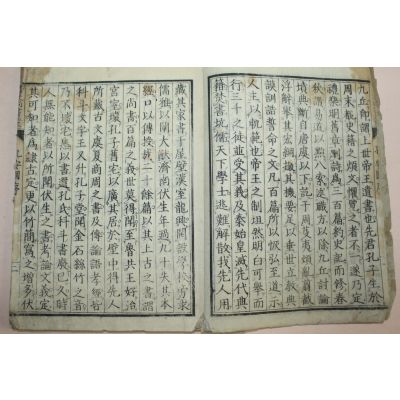 九丘即謂上世帝王遺書也先君孔子生於
周末覩史籍之煩文懼覽之者不一遂乃定
禮樂明舊章刪詩爲三百篇約史記而修春
秋讚易道以黜八索述職方以除九丘討論
墳典斷自唐虞以下訖于周芟夷煩亂翦截
浮辭擧其宏綱撮其機要足以垂世立教典
謨訓誥誓命之文凡百篇所以恢弘至道示
人主以軌範也帝王之制坦然明白可擧而
行三千之徒並受其義及秦始皇滅先代典
籍焚書坑儒天下學士逃難解散我先人用
藏其家書于屋壁漢室龍興開設學校旁求
儒雅以闡大猷濟南伏生年過九十失其本
經口以傳授裁二十餘篇以其上古之書謂
之尚書百篇之義世莫得聞至魯共王好治
宮室壞孔子舊宅以廣其居於壁中得先人
所藏古文虞夏商周之書及傳論語孝經皆
科斗文字王又升孔子堂聞金石絲竹之音
乃不壞宅悉以書還孔氏科斗書廢已久時
人無能知者以所聞伏生之書考論文義定
其可知者爲隸古定更以竹簡寫之增多伏